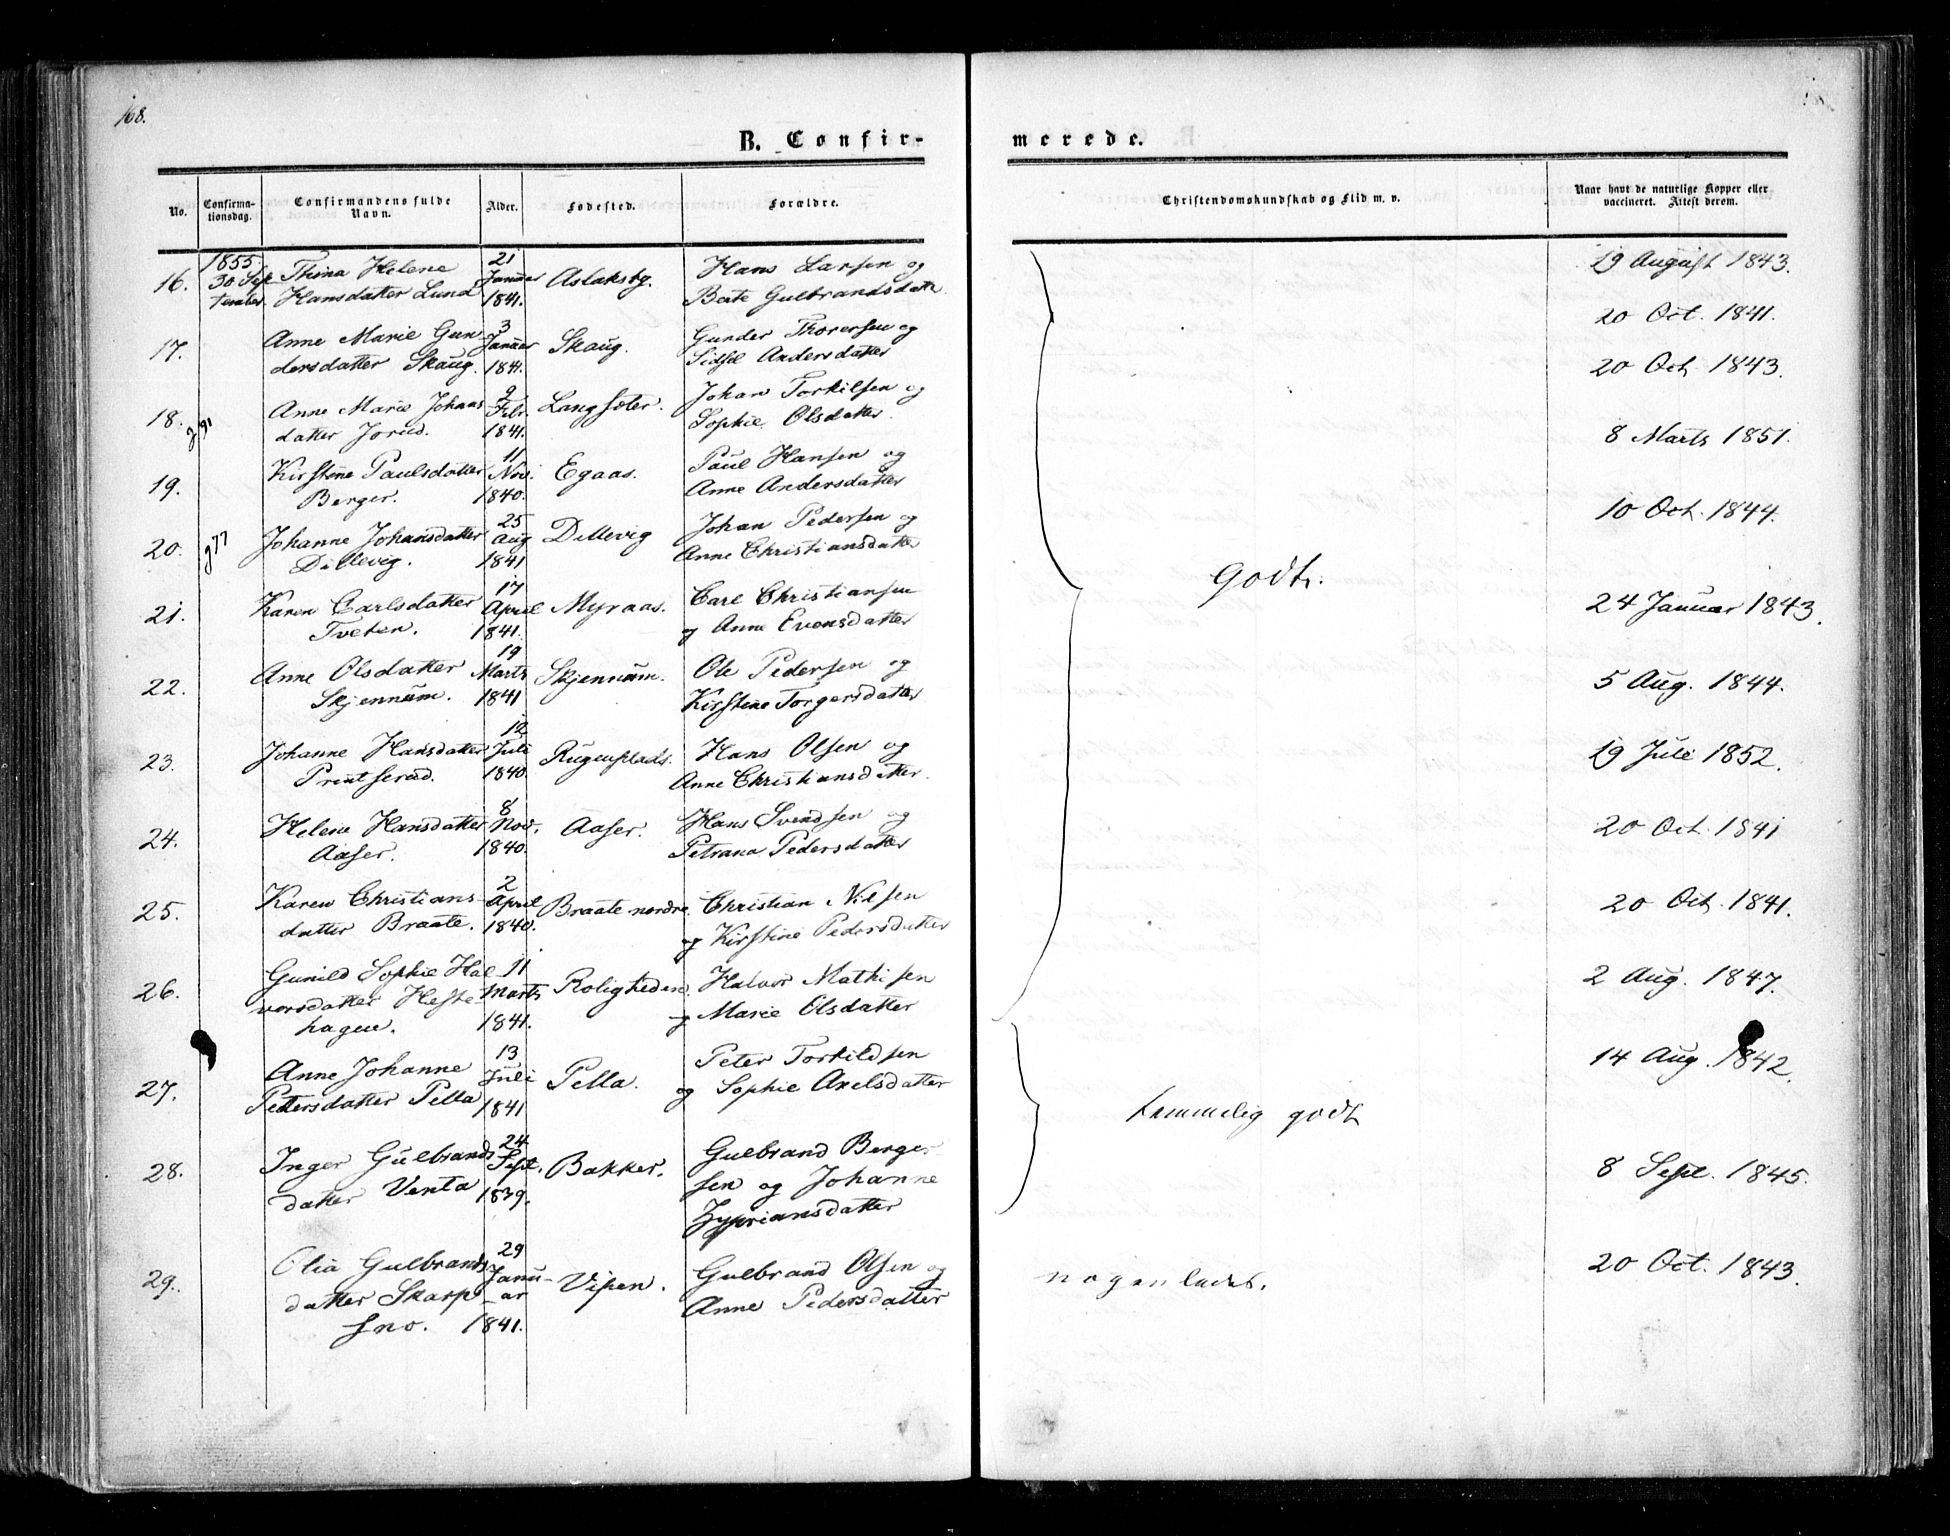 168.
B. Confir-
merede.
No.
Confirma-
tionsdag.
Confirmandens fulde
Navn.
Alder.
Fødested.
Forældre.
Christendomskundskab og Flid m. v.
Naar havt de naturlige Kopper eller
vaccineret. Attest derom.
16.
1855.
30 Sep-
tember.
Thina Helene
Hansdatter Lund
21
Januar
1841.
Aslaksby.
Hans Larsen og
Berte Gulbrandsdatter
19 August 1843.
17.
Anne Marie Gun-
dersdatter Skaug.
3
Januar
1841.
Skaug.
Gunder Thorersen og
Sidsel Andersdatter
20 Oct. 1841.
18.
Anne Marie Johans
datter Jorud.
9
Febr.
1841.
Langsæter.
Johan Torkilsen og
Sophie Olsdatter
20 Oct. 1843.
19.
Kirstine Paulsdatter
Berger.
11
Nov.
1840.
Egaas.
Paul Hansen og
Anne Andersdatter
8 Marts 1851.
20.
g77
Johanne Johansdatter
Dillevig.
25
Aug
1841
Dillevig
Johan Pedersen og
Anne Christiansdatter
10 Oct. 1844.
Godt.
21.
Karen Carlsdatter
Tveten.
17
April
1841.
Myraas.
Carl Christiansen
og Anne Evensdatter
24 Januar 1843.
22.
Anne Olsdatter
Skjennum.
19
Marts
1841
Skjennum.
Ole Pedersen og
Kirstine Torgersdatter
5 Aug. 1844.
23.
Johanne Hansdatter
Printserud.
12
Juli
1840.
Rugenplads.
Hans Olsen og
Anne Christiansdatter.
19 Juli 1852.
24.
Helene Hansdatter
Aaser.
8
Nov.
1840.
Aaser.
Hans Svendsen og
Petrana Pedersdatter
20 Oct. 1841
25.
Karen Christians-
datter Braate.
2
April
1840.
Braate nordre.
Christian Nilsen
og Kirstine Pedersdatter
20 Oct. 1841.
26.
Gunild Sophie Hal-
vorsdatter Heste-
hagen.
11
Marts
1841.
Roligheden.
Halvor Mathisen
og Marie Olsdatter
2 Aug. 1847.
27.
Anne Johanne
Pettersdatter Pella
13
Juli
1841
Pella.
Peter Torkildsen
og Sophie Axelsdatter
14 Aug. 1842.
temmelig godt
28.
Inger Gulbrands
datter Venta
24
Sept.
1839.
Bakker.
Gulbrand Berger-
sen og Johanne
Zypriansdatter
8 Sept. 1845.
29.
Olia Gulbrands-
datter Skarp-
sno.
29
Janu-
ar
1841.
Vipen.
Gulbrand Olsen og
Anne Pedersdatter
nogenledes.
20 Oct. 1843.